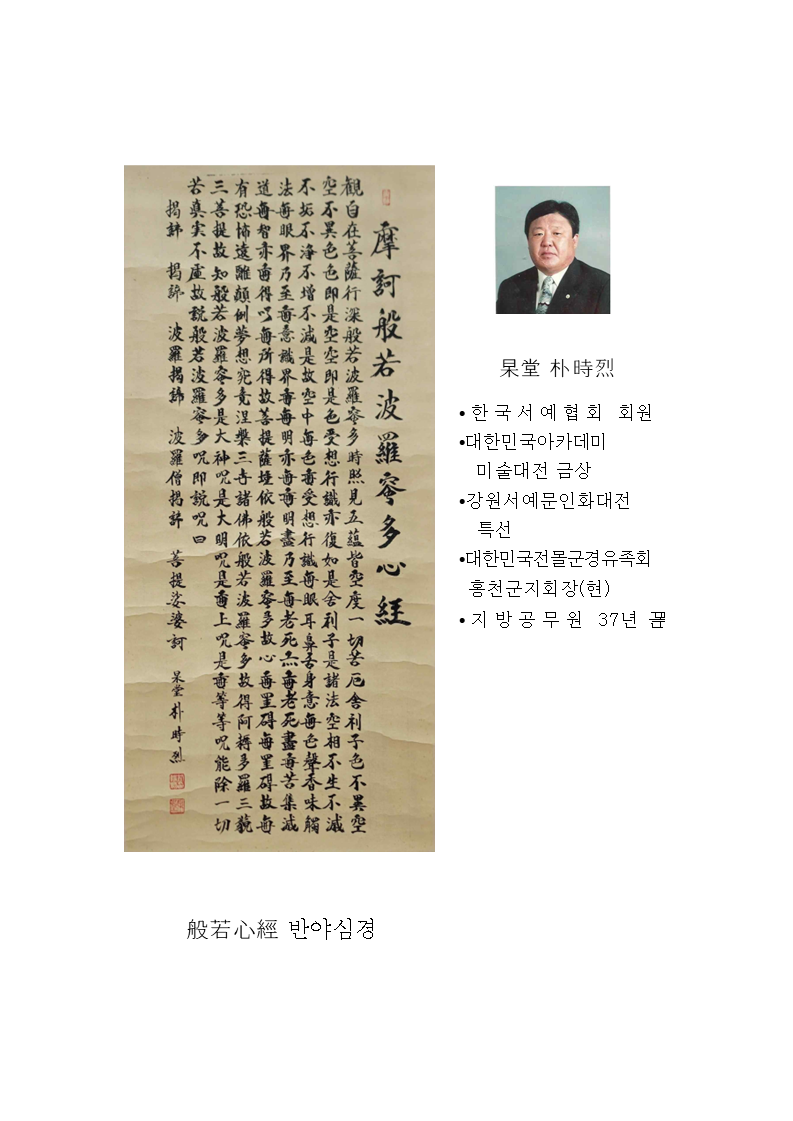 摩訶般若波羅密多心經
觀自在菩薩行深般若波羅密多時照見五蘊皆空度一切苦厄舍利子色不異空
空不異色色即是空空即是色受想行識亦復如是舍利子是諸法空相不生不滅
不垢不淨不增不減是故空中無色無受想行識無眼耳鼻舌身意無色聲香味觸
法無眼界乃至無意識界無無明亦無無明盡乃至無老死亦無老死盡無苦集滅
道無智亦無得以無所得故菩提薩埵依般若波羅密多故心無罣碍無罣碍故無
有恐怖遠離顛倒夢想究竟涅槃三世諸佛依般若波羅密多故得阿耨多羅三藐
三菩提故知般若波羅密多是大神呪是大明呪是無上呪是無等等呪能除一切
苦真实不虛故說般若波羅密多呪即說呪曰
揭諦 揭諦 波羅揭諦 波羅僧揭諦 菩提娑婆訶 杲堂 朴時烈
杲堂 朴時烈
•한국서예협회 회원
•대한민국아카데미
미술대전 금상
•강원서예문인화대전
특선
•대한민국전몰군경유족회
홍천군지회장(현)
•지방공무원 37년
般若心經 반야심경